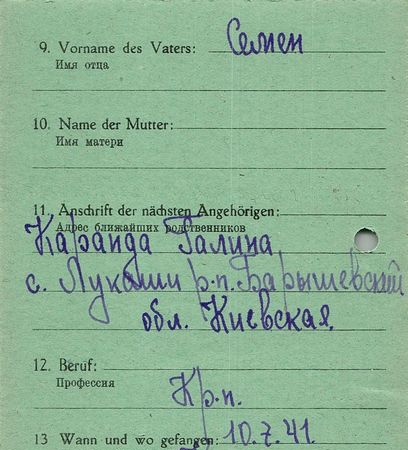 9. Vorname des Vaters: Семен
Имя отца
10. Name der Mutter:
Имя матери
11. Anschrift der nächsten Angehörigen:
Адрес ближайших родственников
Каранда Галина
с. Лукаши р-н. Барышевский
обл. Киевская
12. Beruf:
Профессия
Кр-н.
13 Wann und wo gefangen: 10.7.41.